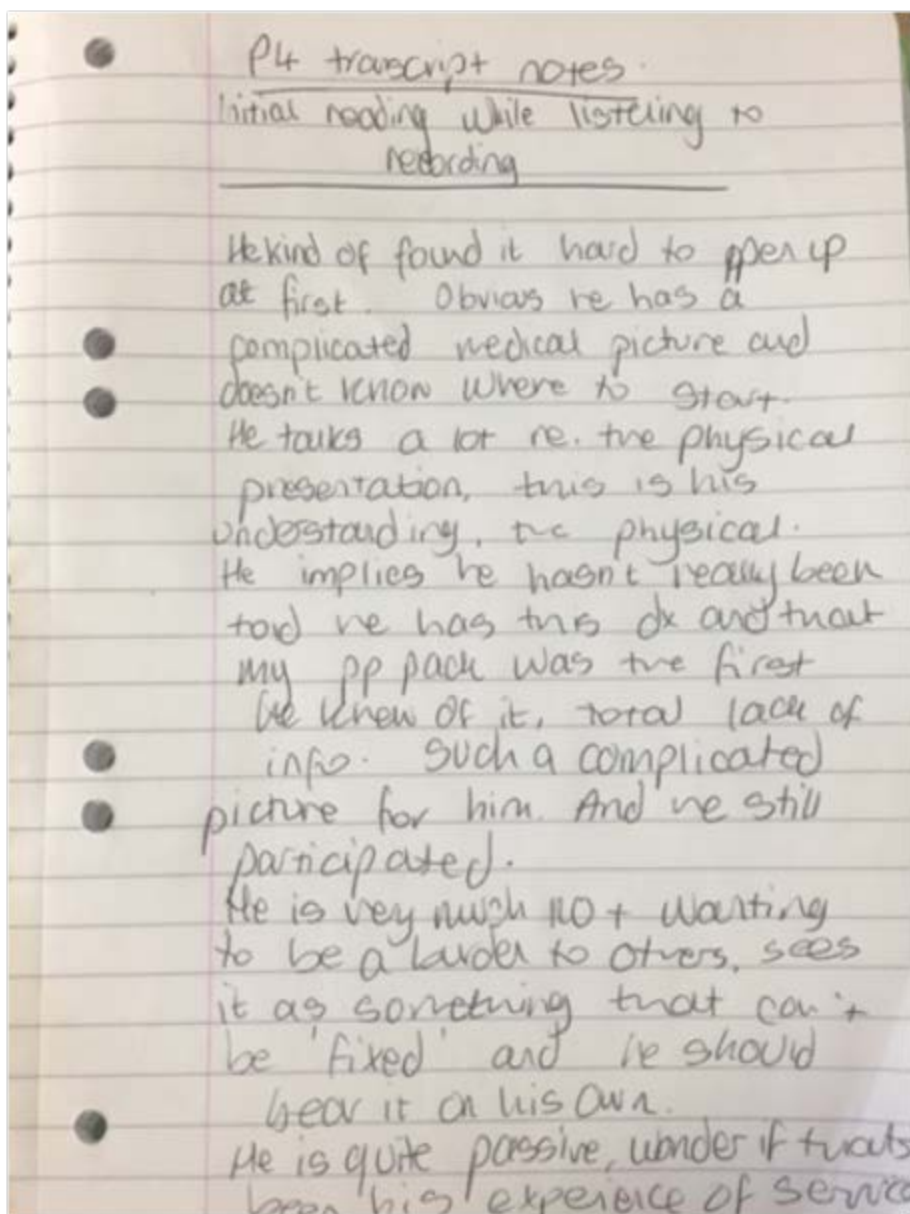 P4 transcript notes.
Initial reading while listening to
recording
He kind of found it hard to open up
at first. Obvious he has a
complicated medical picture and
doesn't know where to start.
He talks a lot re. the physical
presentation, this is his
understanding, the physical.
He implies he hasn't really been
told he has this dx and that
my pp pack was the first
he knew of it, total lack of
info. Such a complicated
picture for him. And he still
participated.
He is very much not wanting
to be a burden to others, sees
it as something that can't
be 'fixed' and he should
bear it on his own.
He is quite passive, wonder if thats
been his experience of service